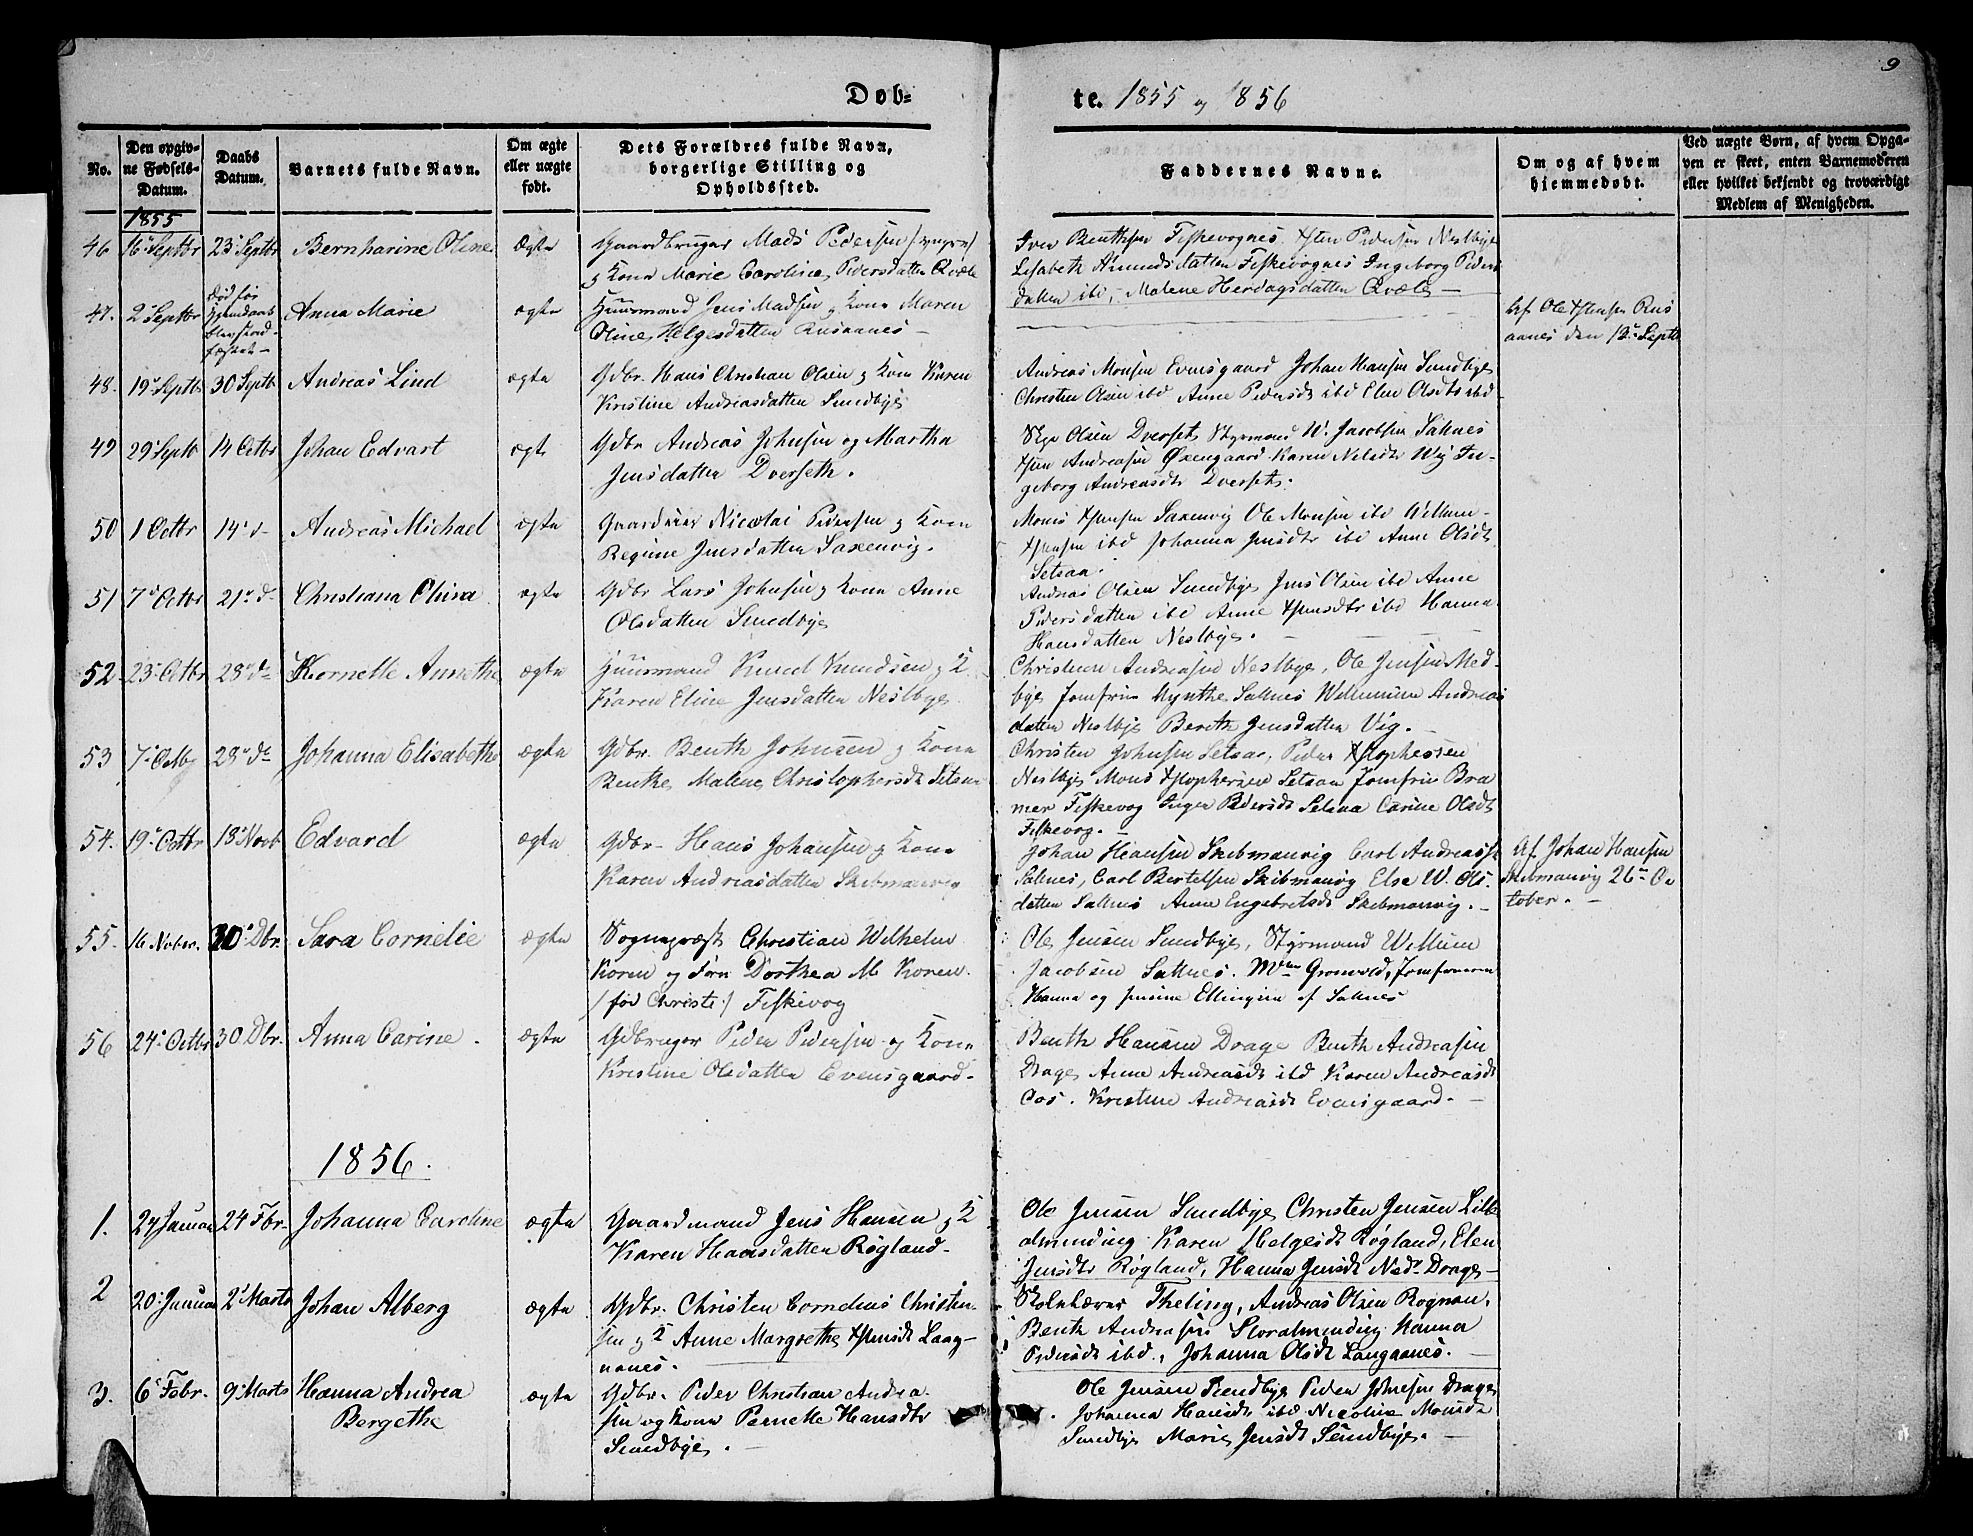 9
Døb-
te. 1855 og 1856
No.
Den opgiv-
ne Fødsels-
Datum.
Daabs
Datum.
Barnets fulde Navn.
Om ægte
eller uægte
født.
Dets Forældres fulde Navn,
borgerlige Stilling og
Opholdssted.
Faddernes Navne.
Om og af hvem
hjemmedøbt.
Ved uægte Børn, af hvem Opga-
ven er skeet, enten Barnemoderen
eller hvilket bekjendt og troværdigt
Medlem af Menigheden.
1855
46 16 Septbr 23 Septbr Bernharine Oline ægte Gaardbruger Mads Pedersen
og Kone Marie Caroline Pedersdatter Qvæle
Iver Benthsen Fiskevognes Pedersen Nestbye
Lisabeth Amundsdatter Fiskevognes Ingeborg Peders
datter ibd, Malene Herdagsdatter Qvæle
47. 2 Septbr død før Anna Marie ægte Huusmand Jens Madsen og Kone Maren
Oline Helgesdatter Rusaanes
Af Ole Rus
aanes den 12 Septb
48. 19 Septbr 30 Septb Andreas Lind ægte Gdbr. Hans Christian Olsen og Kone Karen
Kristine Andreasdatter Sundbye
Andreas Monsen Evensgaard Johan Hansen Sundbye
Christen Olsen ibd Anne Pedersdt ibd Elen Olsdtr ibd
49 29 Septb 14 Octbr Johan Edvart ægte Gdbr Andreas Johnsen og Martha
Jensdatter Dverseth.
Olsen Dverset, Styrmand W. Jacobsen Saltnes
Andreasen Øxengaard Karen Nelsdtr Wig In-
geborg Andreasdtr Dverset.
50 1 Octbr 14 d Andreas Michael ægte Nicolai Pedersen og Kone
Regine Jensdatter Saxenvig.
Mons Saxenvig Ole Monsen ibd Willum
ibd Johanna Jensdtr ibd Anne Olsdt
Setsaa.
51 7 Octbr 21 d Christiana Olina ægte Gdbr Lars Johnsen og Kone Anne
Olsdatter Sundbye
Andreas Olsen Sundbye Jens Olsen ibd Anne
Pedersdatter ibd Anne ibd Hanna
Hansdatter Nestbye.
52 23 Octbr 28 do Kornette Annethe ægte Huusmand Knud Knudsen og K.
Karen Eline Jensdatter Nestbye
Christian Andreasen Nestbye, Ole Jensen Med-
bye Jomfru Mynthe Saltnes Wellumine Andreas
datter Nestbye Bereth Jensdatter Vig.
53 7 Octb 28 do Johanna Elisabeth ægte Gdbr. Benth Johnsen og Kone
Benthe Malene Christophersdt Setsaa
Christen Johnsen Setsaa, Peder
Nestbye Mons Setsaa Jomfru Bra
mer Fiskevog Inger Pedersdt Setsaa Carine Olsdt
Fiskevog.
54. 19 Octbr 18 Novb Edvard ægte Gdbr. Hans Johansen og Kone
Karen Andreasdatter Skibmanvig
Johan Hansen Skibmanvig Carl Andreass
Saltnes, Carl Bertelsen Skibmanvig Else W. Ols.
datter Saltnes Anne Engebretsdt Skibmanvig.
Af Johan Hansen
Skibmanvig 26 Oc
tober.
55. 16 Nobr. 30 Dbr. Sara Cornelie ægte Sognepræst Christian Wilhelm
Koren og Fru Dorthea M. Koren
/født Christie/ Fiskevog
Ole Jensen Sundbye, Styrmand Willum
Jacobsen Saltnes. Mme Grønvold, Jomfruerne
Hanna og Ellingsen af Saltnes
56 24 Octbr 30 Dbr. Anna Carine. ægte Gdbruger Peder Pedersen og Kone
Kristine Olsdatter Evensgaard.
Benth Hansen Drage Benth Andreasen
Drage Anne Andreasdt ibd Karen Andreasdt
Oos. Kristine Andreasdt Evensgaard.
1856.
1. 27 Januar 24 Fbr. Johanna Caroline ægte Gaardmand Jens Hansen og K
Karen Hansdatter Røgland.
Ole Jensen Sundbye Christen Jensen Lille
almending Karen Helgesdt Røgland, Elen
Jensdtr Røgland, Hanna Jensdt Nedr Drage
2 20 Januar 2 Marts Johan Alberg ægte Gdbr. Christen Cornelius Christen-
sen og K Anne Margrethe Laag-
nanes.
Skolelærer Theting, Andreas Olsen Rognan,
Benth Andreasen Storalmending Hanna
Pedersdt ibd., Johanna Olsdt Langaanes.
3. 6 Febr. 9 Marts Hanna Andrea
Bergethe
ægte Gdbr. Peder Christian Andrea
sen og Kone Pernelle Hansdtr
Sundbye.
Ole Jensen Sundbye Peder Johnsen Drage
Johanna Hansdt ibd Nicoline Monsdt
Sundbye Marie Jensdt Sundbye.